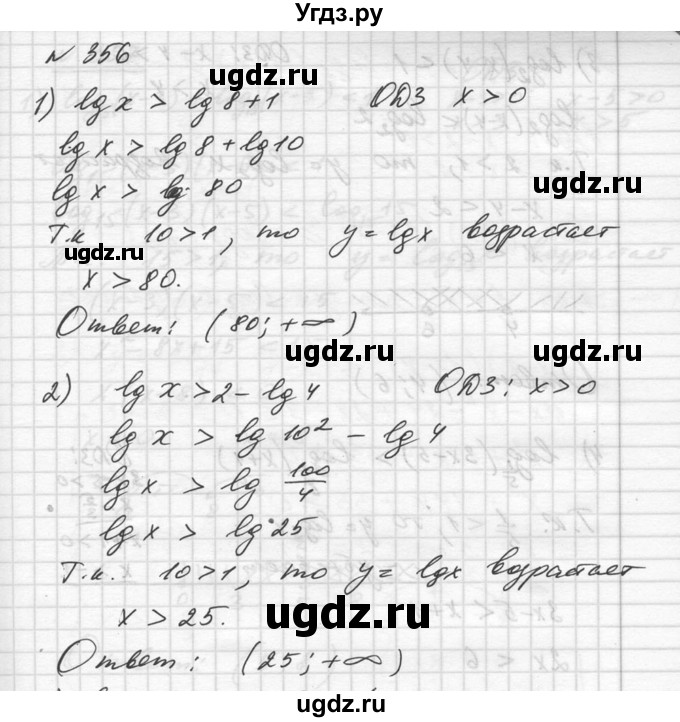 Угдз.ру
№ 356
1) lg x > lg 8 + 1 ОДЗ x > 0
lg x > lg 8 + lg 10
lg x > lg 80
Т.к 10 > 1, то y = lg x возрастает
x > 80.
Ответ: (80; +∞)
2) lg x > 2 - lg 4 ОДЗ: x > 0
lg x > lg 10² - lg 4
lg x > lg 100/4
lg x > lg 25
Т.к. 10 > 1, то y = lg x возрастает
x > 25.
Ответ: (25; +∞)
ugdz.ru
ugdz.ru
ugdz.ru
ugdz.ru
ugdz.ru
ugdz.ru
ugdz.ru
ugdz.ru
ugdz.ru
ugdz.ru
ugdz.ru
ugdz.ru